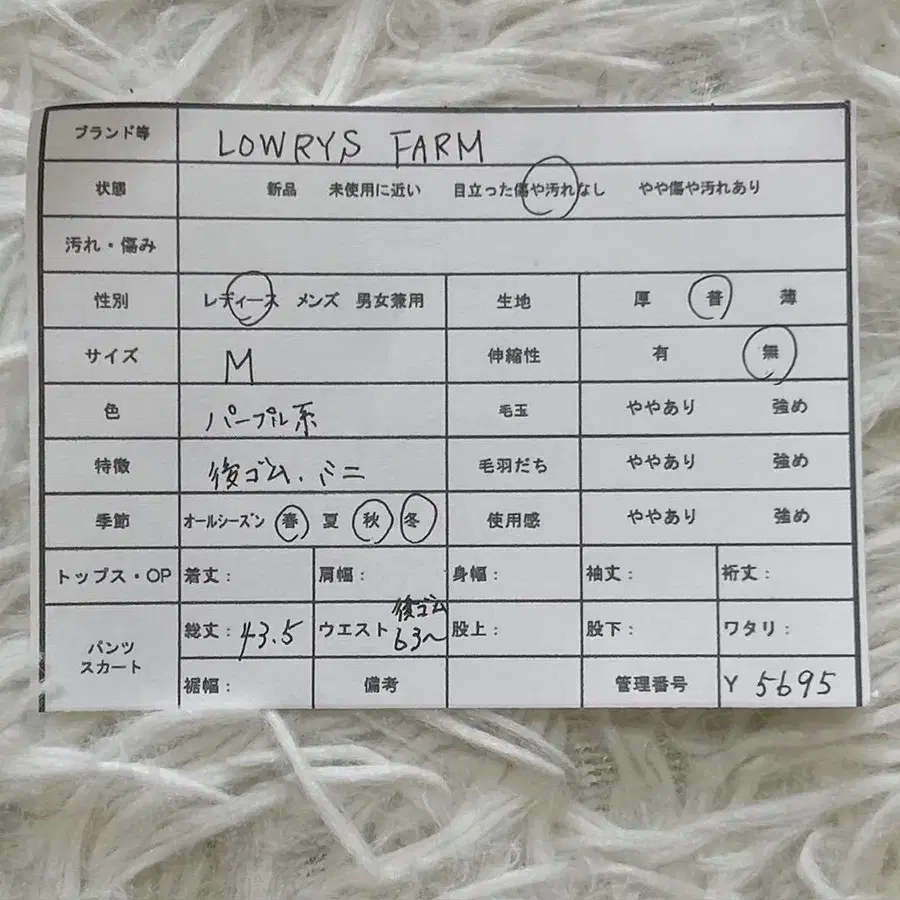 ブランド等 LOWRYS FARM
状態 新品 未使用に近い 目立った傷や汚れなし やや傷や汚れあり
汚れ・傷み
性別 レディース メンズ 男女兼用 生地 厚 普 薄
サイズ M 伸縮性 有 無
色 パープル系 毛玉 ややあり 強め
特徴 後ゴム、ミニ 毛羽だち ややあり 強め
季節 オールシーズン 春 夏 秋 冬 使用感 ややあり 強め
トップス・OP 着丈： 肩幅： 身幅： 袖丈： 裄丈：
パンツ
スカート
総丈：43.5 ウエスト 後ゴム 63〜 股上： 股下： ワタリ：
裾幅： 備考 管理番号 Y 5695